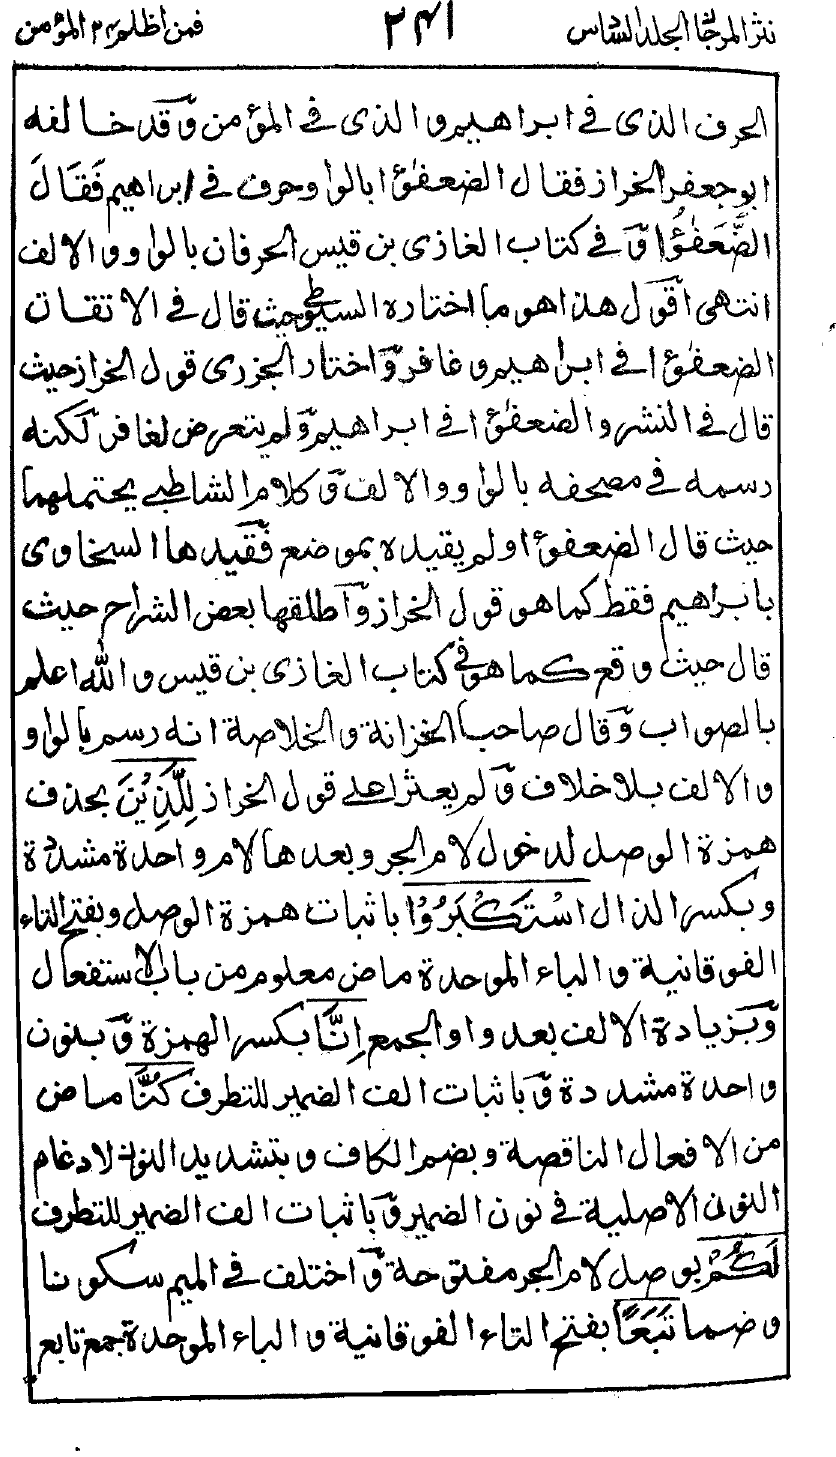 نثر المرجان الجلد السادس ٢٤١ فمن اظلم ٢٤ المؤمن
الحرف الذى فى ابراهيم والذى فى المؤمن وقد خالفه
ابو جعفر الخراز فقال الضعفٰؤا بالواو حرف فى ابراهيم فَقَالَ
الضُّعَفٰؤُا وَ فى كتاب الغازى بن قيس الحرفان بالواو والالف
انتهى اقول هذا هو ما اختاره السيوطى حيث قال فى الاتقان
الضعفٰؤا فى ابراهيم وغافر واختار الجزرى قول الخراز حيث
قال فى النشر والضعفٰؤا فى ابراهيم ولم يتعرض لغافر لكنه
رسمه فى مصحفه بالواو والالف وكلام الشاطبى يحتملهما
حيث قال الضعفؤا ولم يقيده بموضع فقيدها السخاوى
بابراهيم فقط كما هو قول الخراز واطلقها بعض الشراح حيث
قال حيث وقع كما هو فى كتاب الغازى بن قيس والله اعلم
بالصواب وقال صاحب الخزانة والخلاصة انه رسم بالواو
والالف بلا خلاف ولم يعثرا على قول الخراز لِلَّذِيْنَ بحذف
همزة الوصل لدخول لام الجر وبعدها لام واحدة مشددة
وبكسر الذال اسْتَكْبَرُوْا باثبات همزة الوصل وبفتح التاء
الفوقانية والباء الموحدة ماض معلوم من باب الاستفعال
وبزيادة الالف بعد واو الجمع اِنَّا بكسر الهمزة وبنون
واحدة مشددة وباثبات الف الضمير للتطرف كُنَّا ماض
من الافعال الناقصة وبضم الكاف وبتشديد النون لادغام
النون الاصلية فى نون الضمير وباثبات الف الضمير للتطرف
لَكُمْ بوصل لام الجر مفتوحة واختلف فى الميم سكونا
وضما تَبَعًا بفتح التاء الفوقانية والباء الموحدة جمع تابع